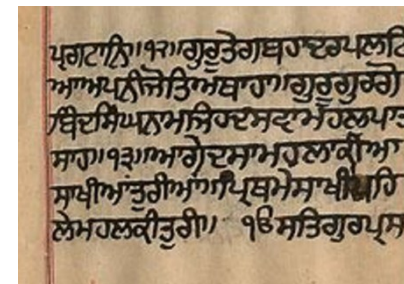 ਪ੍ਰਗਟਾਨਿ॥੧੨॥ਗੁਰੂਤੇਗਬਹਾਦਰਪਲਟਿ
ਆਅਪਨੀਜੋਤਿਅਥਾਹਾ॥ਗੁਰੂਗੁਰਗੋ
ਬਿੰਦਸਿੰਘਨਾਮਜਿਹਦਸਵਾਮਹਲਪਾਤ
ਸਾਹ॥੧੩॥ਆਗੇਦਸਾਮਹਲਾਕੀਆ
ਸਾਖੀਆਤੁਰੀਆ॥ਪ੍ਰਥਮੇਸਾਖੀਪਹਿ
ਲੇਮਹਲਕੀਤੁਰੀ॥ ੧ਓੱਸਤਿਗੁਰਪ੍ਰਸ